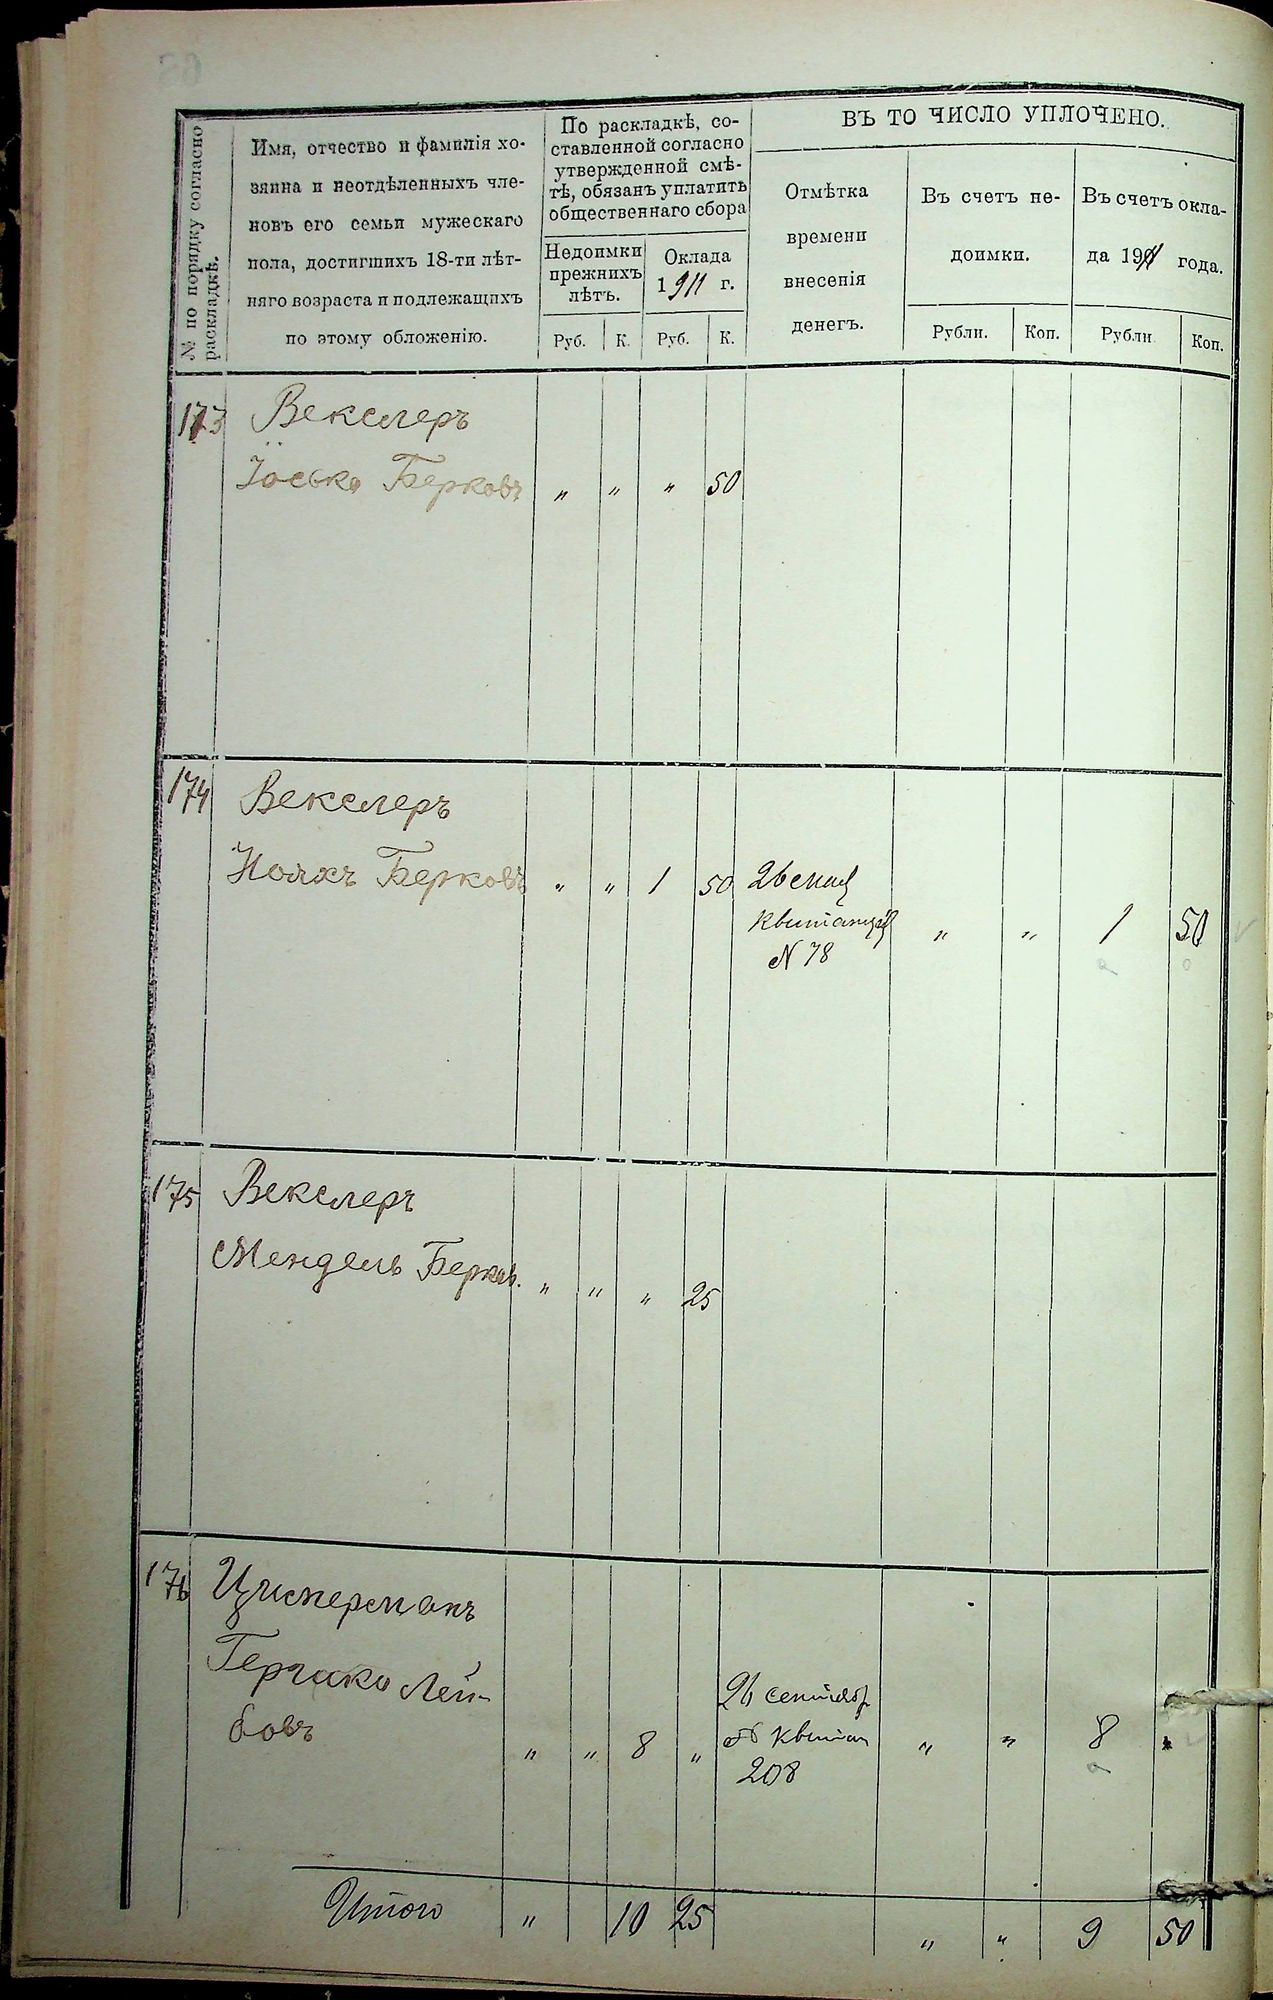 № по порядку согласно
раскладкѣ.
Имя, отчество и фамилія хо-
зяина и неотдѣленныхъ чле-
новъ его семьи мужескаго
пола, достигшихъ 18-ти лѣт-
няго возраста и подлежащихъ
по этому обложенію.
По раскладкѣ, со-
ставленной согласно
утвержденной смѣ-
тѣ, обязанъ уплатить
общественнаго сбора
Недоимки
прежнихъ
лѣтъ.
Оклада
1911 г.
Руб. К. Руб. К.
ВЪ ТО ЧИСЛО УПЛОЧЕНО.
Отмѣтка
времени
внесенія
денегъ.
Въ счетъ не-
доимки.
Въ счетъ окла-
да 1911 года.
Рубли. Коп. Рубли Коп.
173 Векслеръ
Іосько Берковъ " " " 50
174 Векслеръ
Нояхъ Берковъ " " 1 50 26
N 78 " " 1 50
175 Векслеръ
Мендель Берков. " " " 25
176 Цимерманъ
Гершко Лей-
бовъ " " 8 " 26 сентябр
квитан
208 " " 8 "
Итого " 10 25 " " 9 50